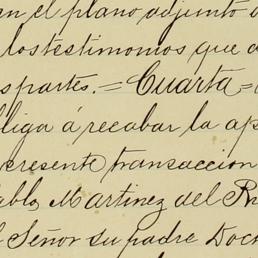 en el plano adjunto
lostestimonios que
spartes.=Cuarta=
liga á recabar la ap
presente transaccion
ablo Martinez del R
l Señor su padre Doc